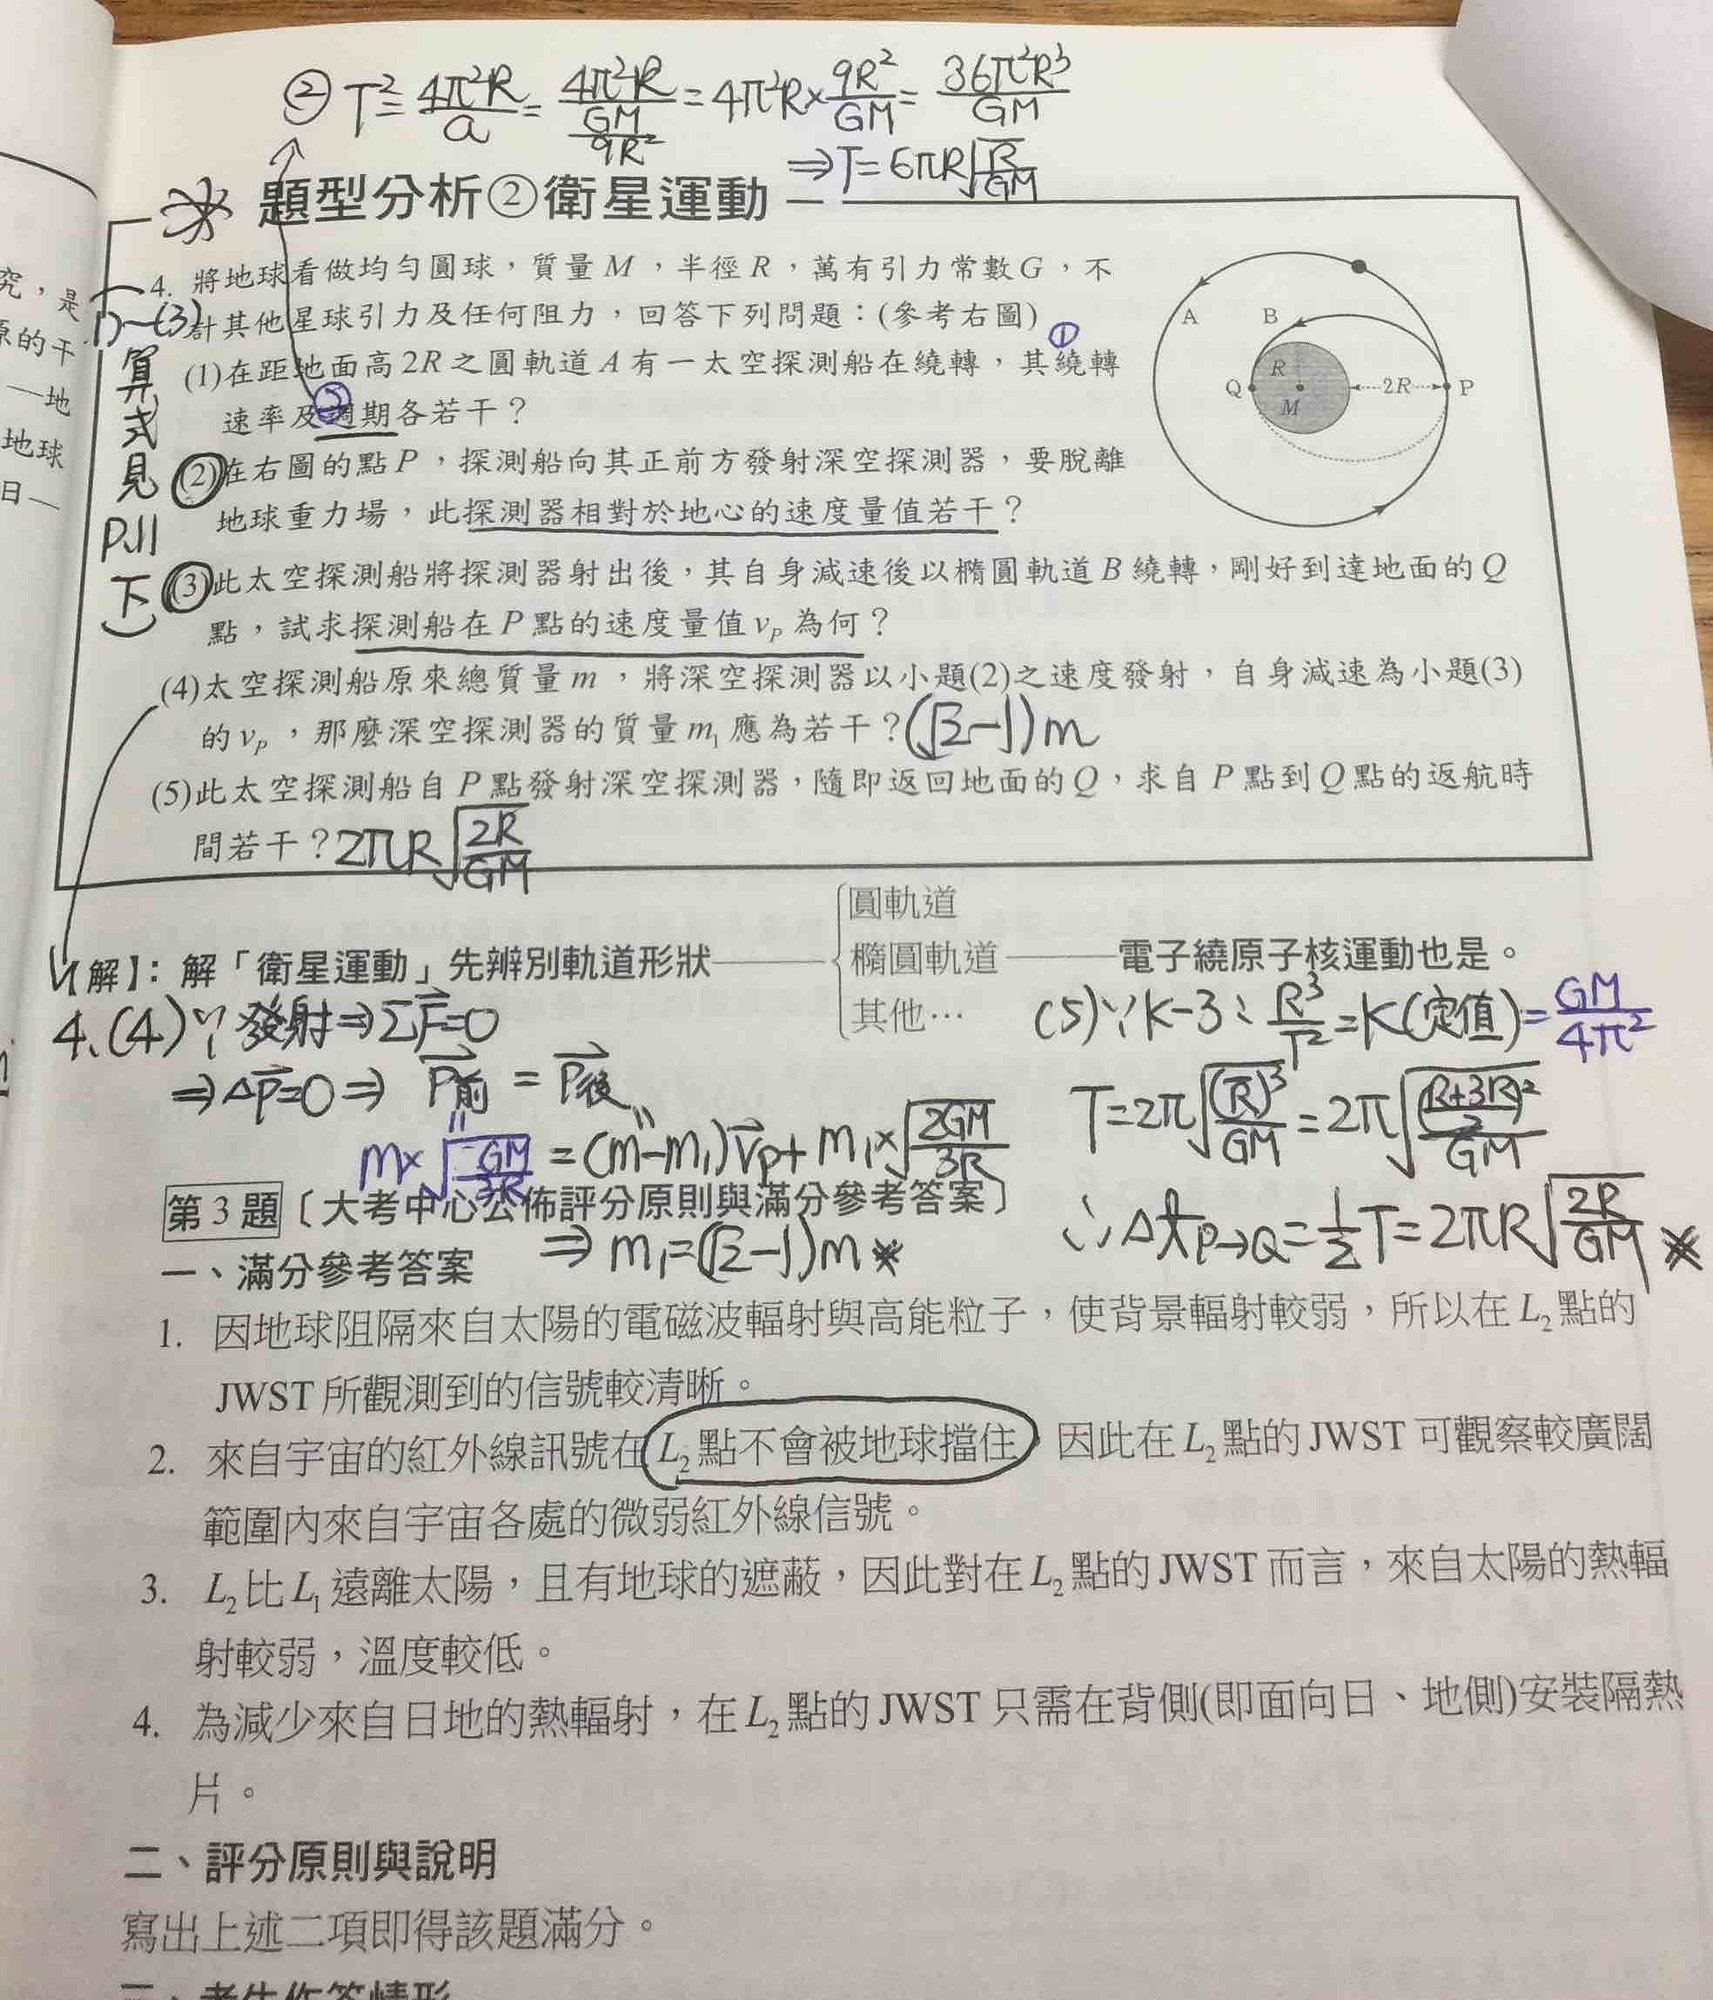 ② T²=4π²R/a=4π²R/(GM/9R²)=4π²R×9R²/GM=36π²R³/GM
⇒T=6πR√(R/GM)
題型分析②衛星運動
4. 將地球看做均勻圓球，質量M，半徑R，萬有引力常數G，不
計其他星球引力及任何阻力，回答下列問題：(參考右圖)
(1)在距地面高2R之圓軌道A有一太空探測船在繞轉，其繞轉
①
速率及週期各若干？
②
(2)在右圖的點P，探測船向其正前方發射深空探測器，要脫離
地球重力場，此探測器相對於地心的速度量值若干？
(3)此太空探測船將探測器射出後，其自身減速後以橢圓軌道B繞轉，剛好到達地面的Q
點，試求探測船在P點的速度量值vₚ為何？
(4)太空探測船原來總質量m，將深空探測器以小題(2)之速度發射，自身減速為小題(3)
的vₚ，那麼深空探測器的質量m₁應為若干？(√2-1)m
(5)此太空探測船自P點發射深空探測器，隨即返回地面的Q，求自P點到Q點的返航時
間若干？2πR√(2R/GM)
A
B
Q
R
M
2R
P
1)~(3)
算
式
見
P.11
下
究，是
原的干
—地
地球
日—
圓軌道
【解】：解「衛星運動」先辨別軌道形狀——橢圓軌道——電子繞原子核運動也是。
其他…
4、(4)∵發射⇒ΣF⃗=0
⇒Δp⃗=0⇒P⃗前=P⃗後
m×√(GM/3R)=(m-m₁)v⃗p+m₁×√(2GM/3R)
⇒m₁=(√2-1)m※
(5)∵K-3：R³/T²=K(定值)=GM/4π²
T=2π√((R̄)³/GM)=2π√(((R+3R)/2)²/GM)
∴Δt P→Q=½T=2πR√(2R/GM)※
第3題〔大考中心公佈評分原則與滿分參考答案〕
一、滿分參考答案
1. 因地球阻隔來自太陽的電磁波輻射與高能粒子，使背景輻射較弱，所以在L₂點的
JWST所觀測到的信號較清晰。
2. 來自宇宙的紅外線訊號在L₂點不會被地球擋住，因此在L₂點的JWST可觀察較廣闊
範圍內來自宇宙各處的微弱紅外線信號。
3. L₂比L₁遠離太陽，且有地球的遮蔽，因此對在L₂點的JWST而言，來自太陽的熱輻
射較弱，溫度較低。
4. 為減少來自日地的熱輻射，在L₂點的JWST只需在背側(即面向日、地側)安裝隔熱
片。
二、評分原則與說明
寫出上述二項即得該題滿分。
三、考生作答情形